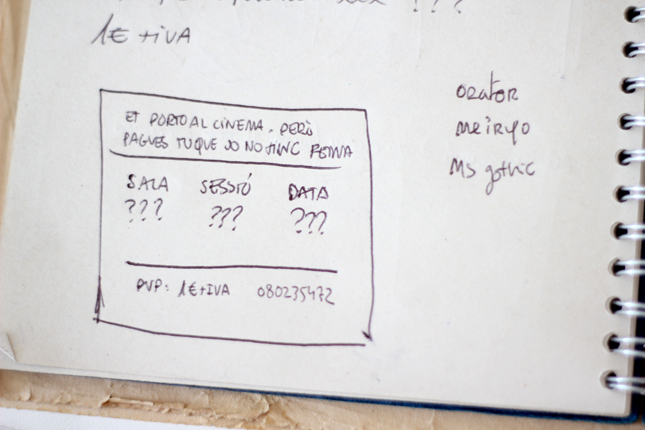 ???
1€ +IVA
ET PORTO AL CINEMA, PERÒ
PAGUES TU QUE JO NO TINC
SALA SESSIÓ DATA
??? ??? ???
PVP: 1€+IVA 080235472
orator
meiryo
MS gothic